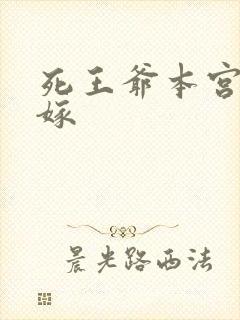 死王爷本宫
嫁
晨光路西法